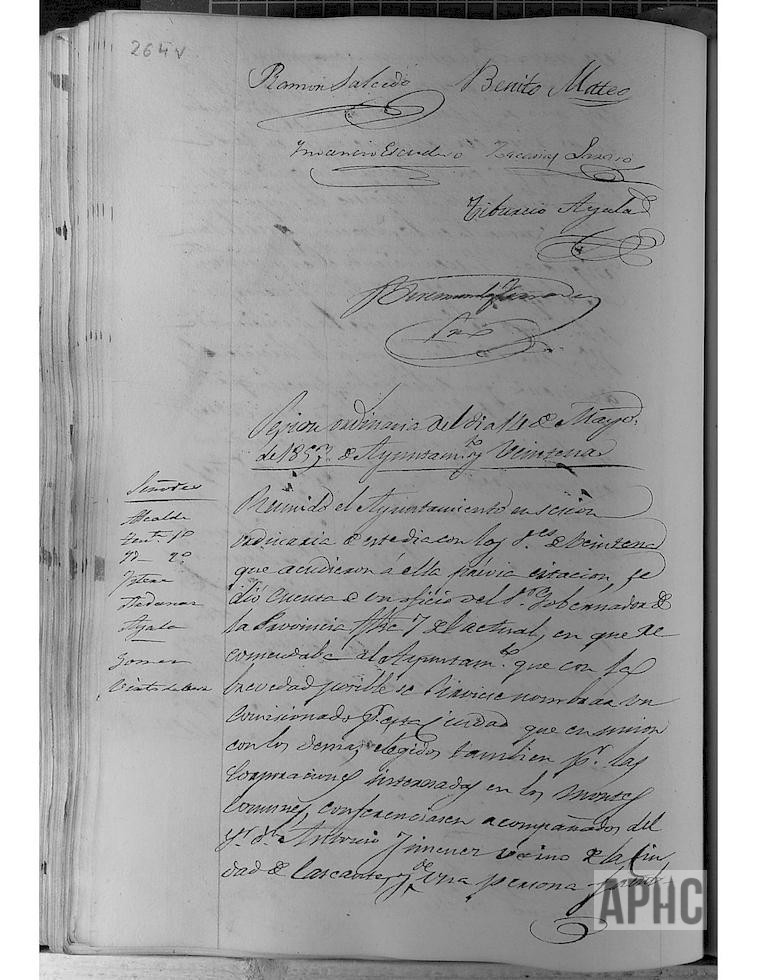 264v
Ramon Salcedo Benito Matteo
Inocencio Escudero Zacarias Lazaro
Tiburcio Ayala
Sesion ordinaria del dia 14 de Mayo
de 1853 de Ayuntam.to y Veintena
Señores
Alcalde
Tent. 1º
Yd 2º
Ayala
Gomez
Reunido el Ayuntamiento en sesion
ordinaria de este dia con los S.res de Veintena
que acudieron á ella previa citacion, se
dió cuenta de un oficio del S.or Gobernador de
la Provincia fho 7 del actual, en que re
comendaba al Ayuntam.to que con la
brevedad posible se sirviese nombrar un
Comisionado por esta Ciudad que en union
con los demas elegidos tambien pr. las
Corporaciones interesadas en los montes
comunes, conferenciasen acompañados del
Sr. Dn. Antonio Jimenez vecino de la Ciu
dad de Cascante, y de una persona
APHC